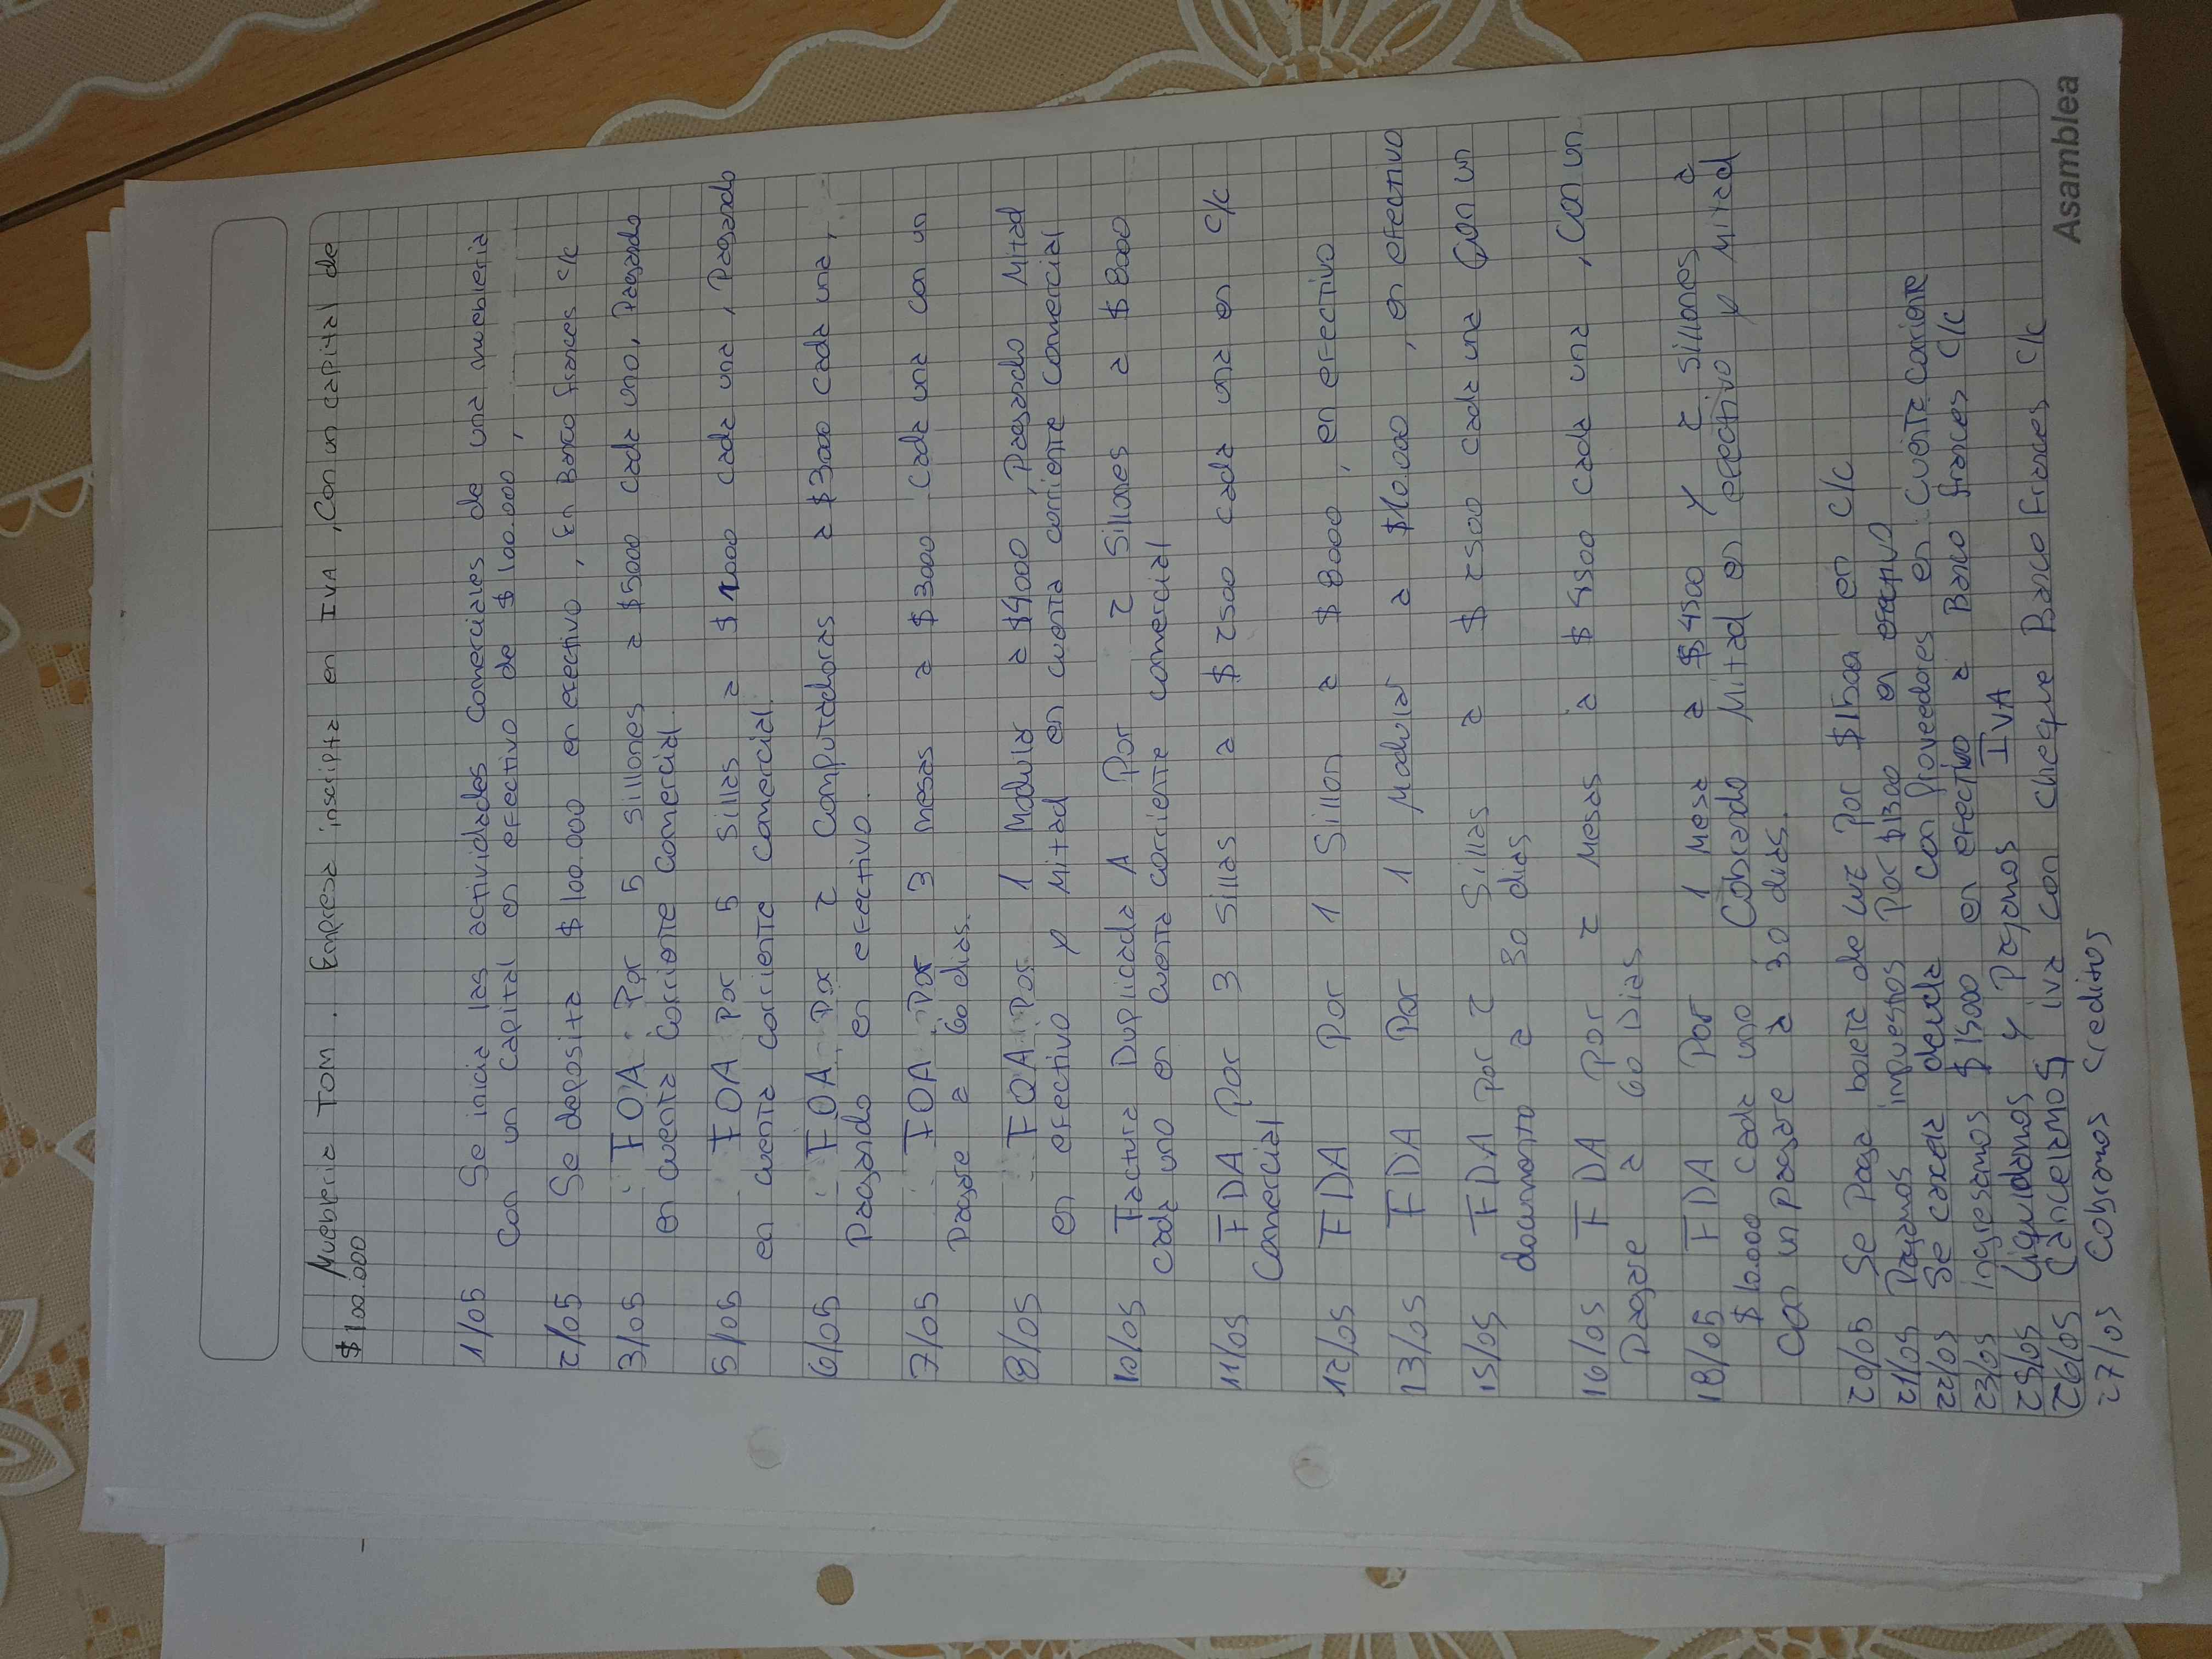 Muebleria TOM. Empresa inscripta en IVA, Con un capital de
$100.000
1/05 Se inicia las actividades comerciales de una muebleria
Con un capital en efectivo de $100.000,
2/05 Se deposita $100.000 en efectivo, En Banco frances c/c
3/05 FOA Por 5 sillones a $5000 cada uno, Pagando
en cuenta Corriente Comercial.
5/05 FOA Por 5 Sillas a $1000 cada una, Pagando
en cuenta corriente comercial.
6/05 FOA Por 2 Computadoras a $3000 cada una,
Pagando en efectivo.
7/05 FOA Por 3 mesas a $3000 Cada una con un
Pagare a 60 dias.
8/05 FOA Por 1 Modular a $4000, Pagando Mitad
en efectivo y Mitad en cuenta corriente Comercial
10/05 Factura Duplicada A Por 2 Sillones a $8000
cada uno en cuenta corriente comercial
11/05 FDA Por 3 Sillas a $2500 cada una en c/c
Comercial
12/05 FDA Por 1 Sillon a $8000, en efectivo
13/05 FDA Por 1 Modular a $10.000, en efectivo
15/05 FDA Por 2 Sillas a $2500 cada una Con un
documento a 30 dias
16/05 FDA Por 2 Mesas a $4500 cada una, Con un
Pagare a 60 Dias
18/05 FDA Por 1 Mesa a $4500 Y 2 Sillones a
$10.000 cada uno Cobrando Mitad en efectivo y Mitad
Con un Pagare a 30 dias.
20/05 Se Paga boleta de luz Por $1500 en c/c
21/05 Pagamos impuestos Por $1300 en efectivo
22/05 Se cancela deuda con Proveedores en cuenta corriente
23/05 Ingresamos $15000 en efectivo a Banco frances c/c
25/05 Liquidamos y Pagamos IVA
26/05 Cancelamos iva con cheque Banco Frances c/c
27/05 Cobramos creditos
Asamblea